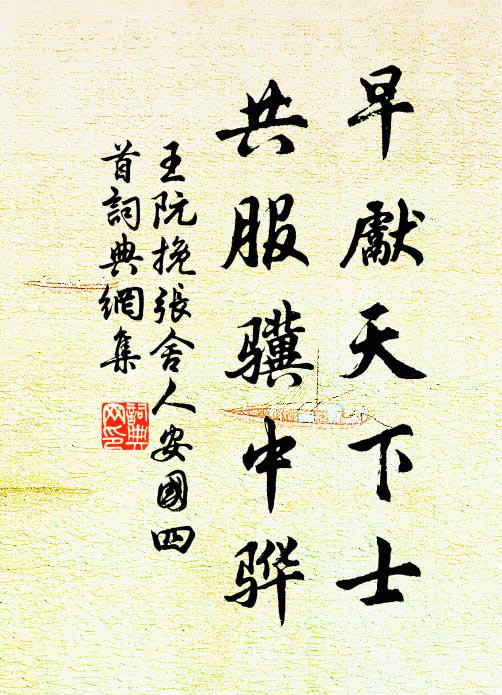 早獻天下士
共服骥中骅
王阮挽張舍人安國四
首詞典網集
詞典
网印